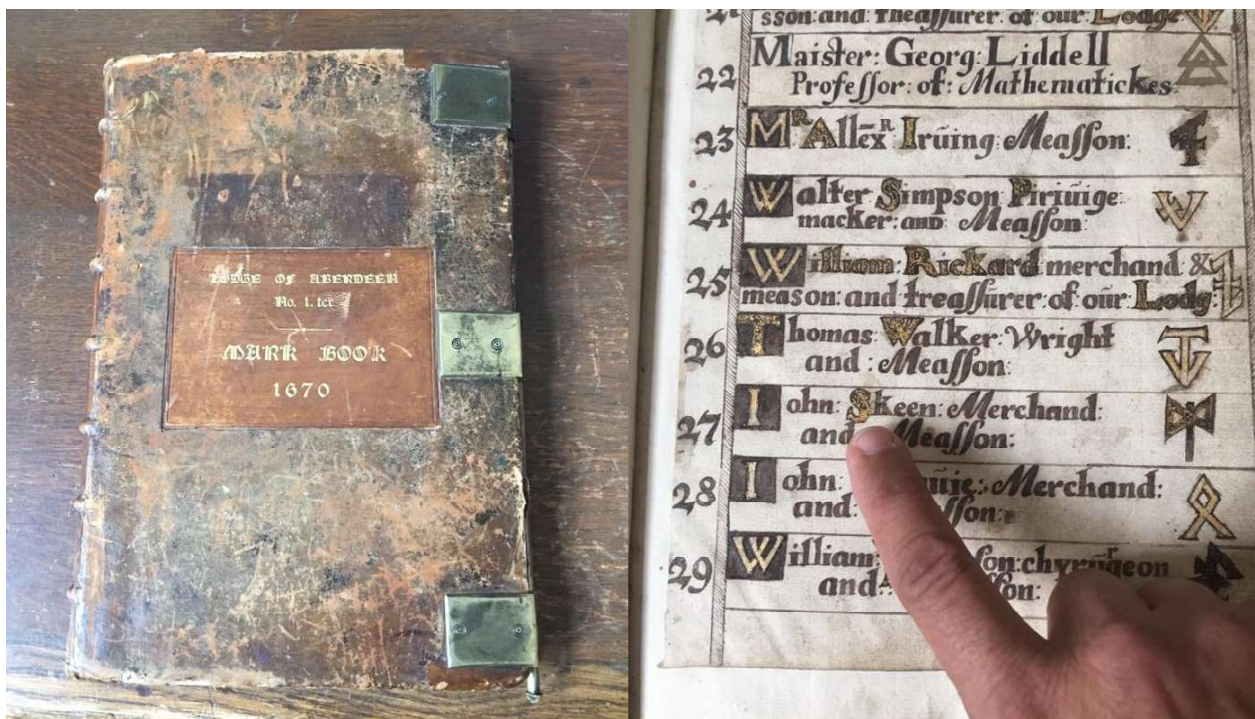 LODGE OF ABERDEEN
No. 1. ter
MARK BOOK
1670
sson: and: Theassurer of our Lodge
22 Maister: Georg: Liddell
Professor: of: Mathematickes
23 Mʀ Allex̄ʀ Irūing Measson:
24 Walter Simpson Piriūige
macker: and Measson:
25 William: Rickard merchand &
meason: and treassūrer: of oūr: Lodg:
26 Thomas: Walker: Wright
and: Measson:
27 Iohn: Skeen: Merchand:
and Measson:
28 Iohn: Merchand:
and:
29 William: chyrūrgeon
and